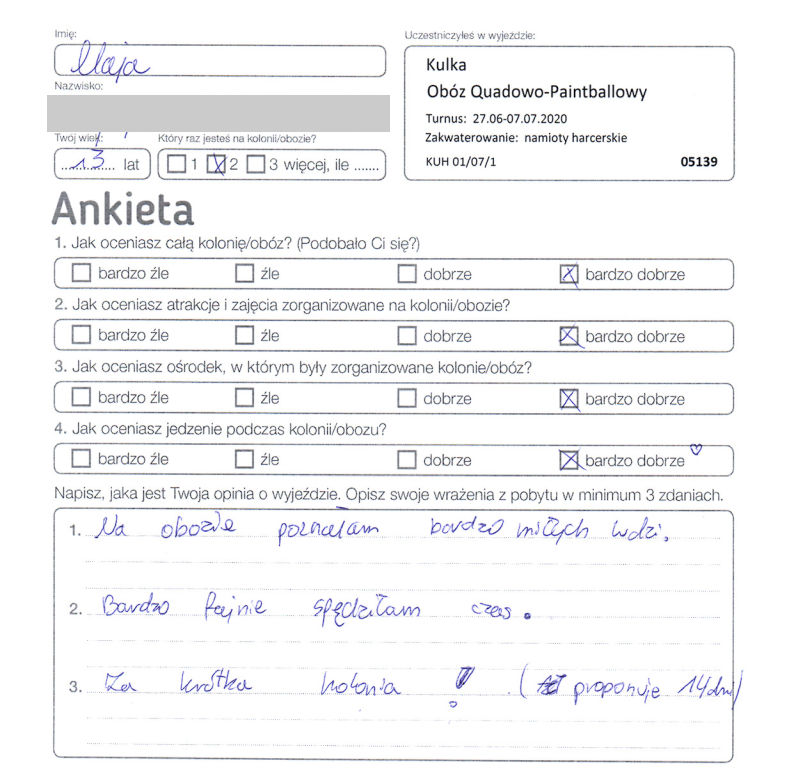 Imię:
Maja
Uczestniczyłeś w wyjeździe:
Kulka
Obóz Quadowo-Paintballowy
Turnus: 27.06-07.07.2020
Zakwaterowanie: namioty harcerskie
KUH 01/07/1 05139
Nazwisko:
Twój wiek:
13 lat
Który raz jesteś na kolonii/obozie?
1 2 3 więcej, ile .......
Ankieta
1. Jak oceniasz całą kolonię/obóz? (Podobało Ci się?)
bardzo źle źle dobrze bardzo dobrze
2. Jak oceniasz atrakcje i zajęcia zorganizowane na kolonii/obozie?
bardzo źle źle dobrze bardzo dobrze
3. Jak oceniasz ośrodek, w którym były zorganizowane kolonie/obóz?
bardzo źle źle dobrze bardzo dobrze
4. Jak oceniasz jedzenie podczas kolonii/obozu?
bardzo źle źle dobrze bardzo dobrze
Napisz, jaka jest Twoja opinia o wyjeździe. Opisz swoje wrażenia z pobytu w minimum 3 zdaniach.
1. Na obozie poznałam bardzo miłych ludzi.
2. Bardzo fajnie spędziłam czas.
3. Za krótka kolonia ! (proponuje 14 dni)